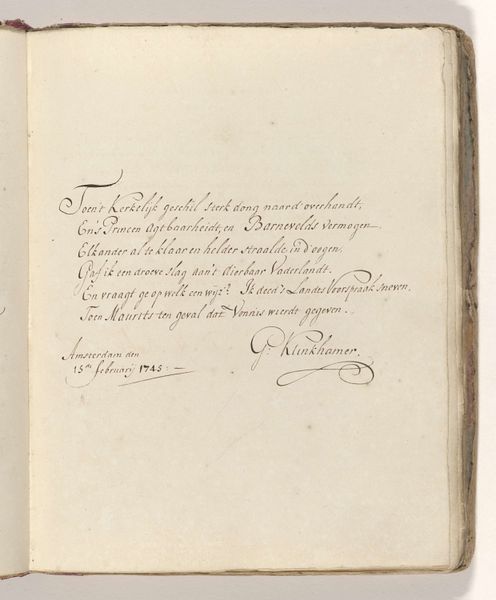 Toen't Kerkelijk geschil sterk dong naard overhandt,
En's Princen Agtbaarheidt, en Barnevelds vermogen
Elkander al te klaar en helder straalde in d'oogen,
Gaf ik een droeve slag aan't dierbaar Vaderlandt.
En vraagt ge op welk een wijz'? Ik deed 's Landts Voorspraak sneven.
Toen Maurits ten geval dat Vonnis wierdt gegeven.
G: Klinkhamer.
Amsterdam den
15den february 1745: